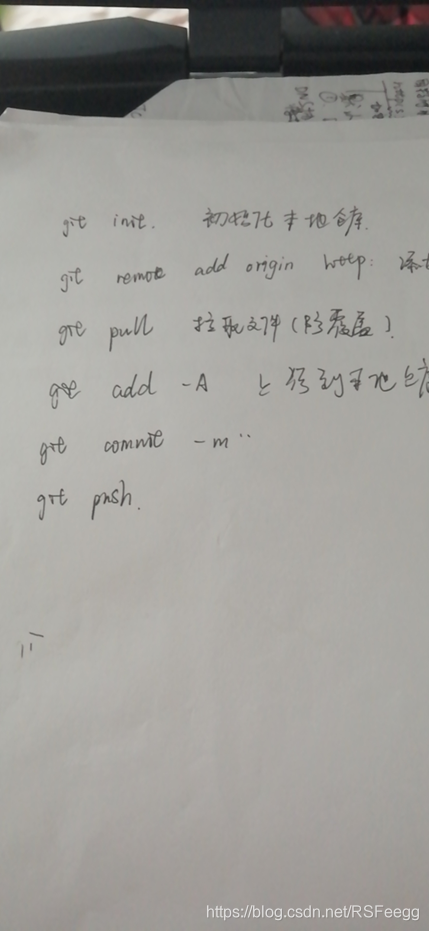 git init. 初始化本地仓库.
git remote add origin http: 添
git pull 拉取文件(防覆盖).
git add -A 上传到本地仓库
git commit -m ''
git push.
https://blog.csdn.net/RSFeegg